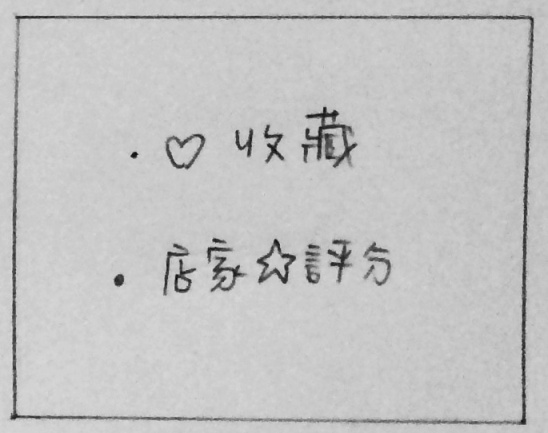 ・♡ 收藏
・店家☆評分